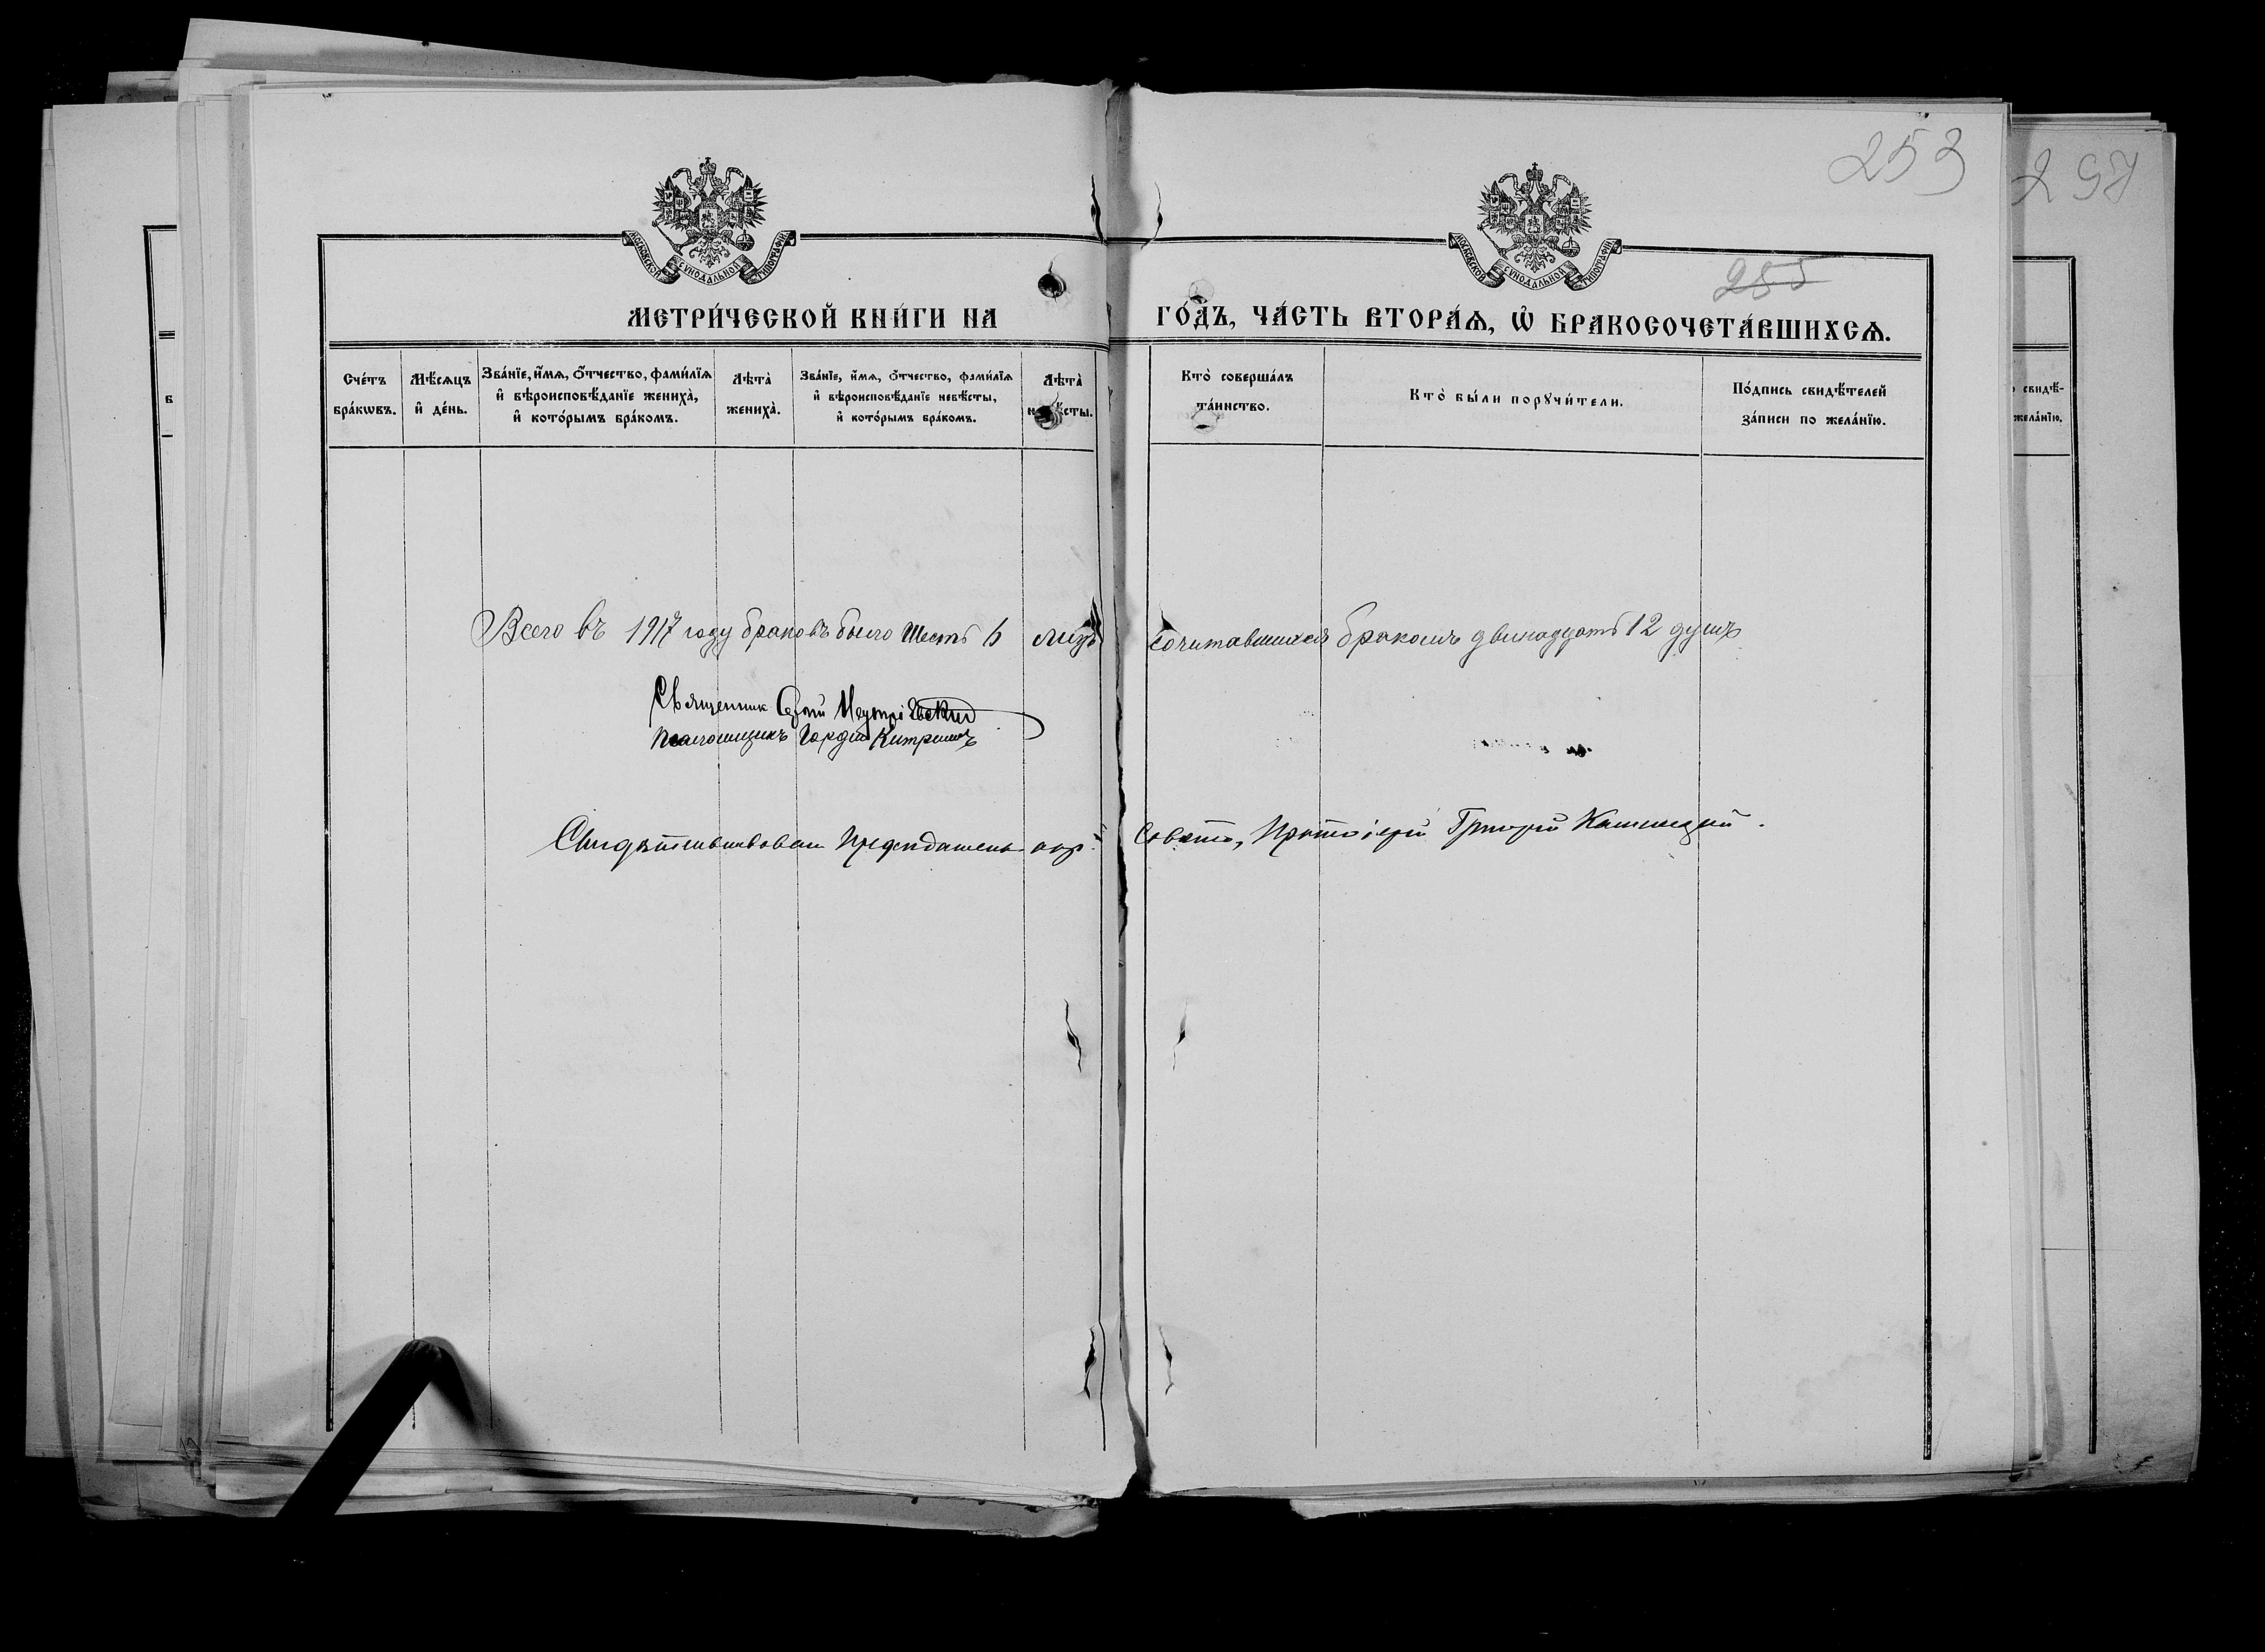 253
257
МОСКОВСКОЙ СѴНОДАЛЬНОЙ ТИПОГРАФІИ
МОСКОВСКОЙ СѴНОДАЛЬНОЙ ТИПОГРАФІИ
255
МЕТРИ́ЧЕСКОЙ КНИ́ГИ НА ГО́ДЪ, ЧА́СТЬ ВТОРА́Ѧ, Ѡ҆ БРАКОСОЧЕТА́ВШИХСѦ.
Сче́тъ
бра́кѡвъ.
Мѣ́сѧцъ
и҆ де́нь.
Зва́нїе, и҆́мѧ, ѻ҆́тчество, фами́лїѧ
и҆ вѣроисповѣ́данїе жениха̀,
и҆ кото́рымъ бра́комъ.
Лѣта̀
жениха̀.
Зва́нїе, и҆́мѧ, ѻ҆́тчество, фами́лїѧ
и҆ вѣроисповѣ́данїе невѣ́сты,
и҆ кото́рымъ бра́комъ.
Лѣта̀
невѣ́сты.
Кто̀ соверша́лъ
та́инство.
Кто̀ бы́ли порꙋчи́тели.
По́дпись свидѣ́телей
за́писи по жела́нїю.
свидѣ́-
жела́нїю.
Всего въ 1917 году браковъ было шесть 6 лицъ сочитавшихся бракомъ двинадцать 12 душъ
Священник Сергій
Псаломщикъ Гордій
Свидѣтельствовал Предсѣдатель окр. Совѣта, Протоіерей Григорій